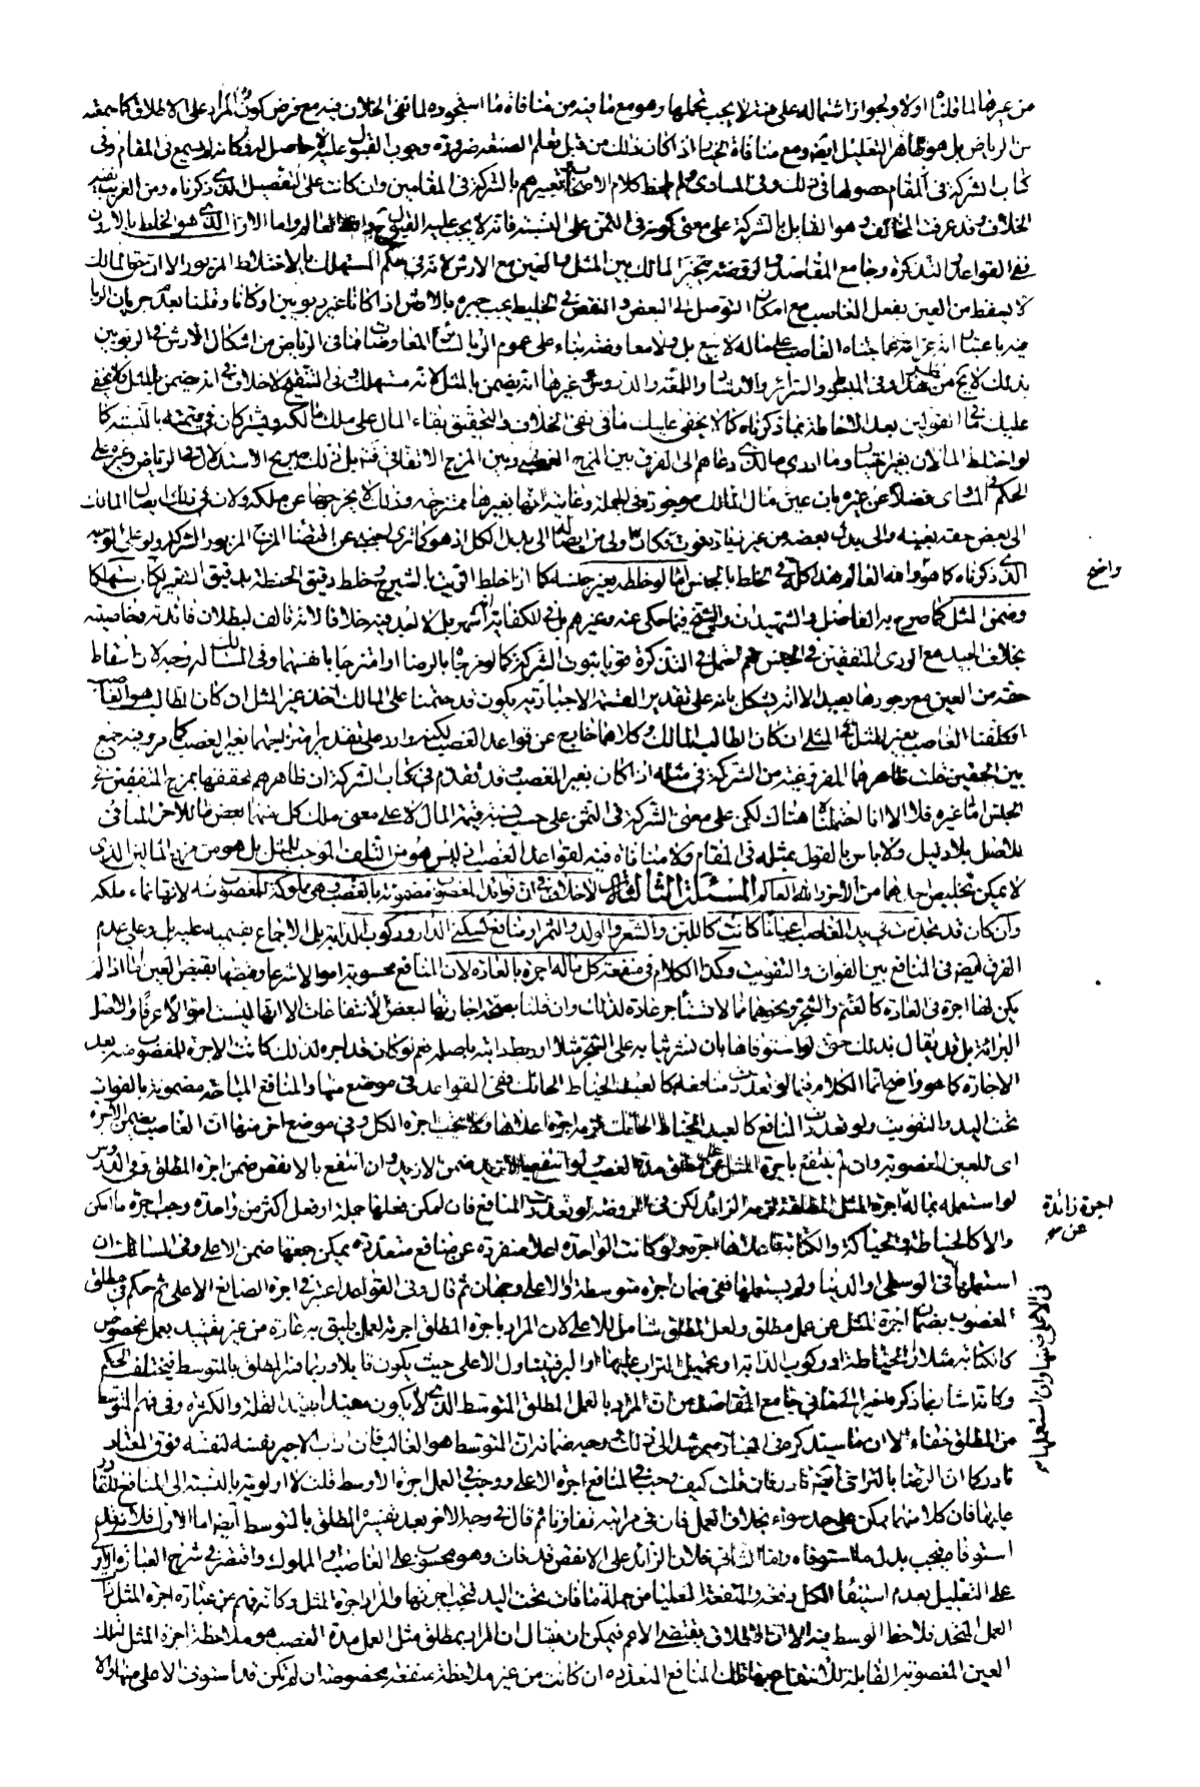 من غيرها لما قلناه اولا ولجواز اشتماله على منة لا يجب تحملها وهو مع ما فيه من منافاة ما استجوده لما نفى الخلاف فيه مع فرض كون المراد على الاطلاق كما سمعته
من الرياض بل هو ظاهر التعليل ايضا ومع منافاة الخبر اذا كان ذلك من قبل تعلم الصنعة ضرورة وجوب القبول عليه في المقام وفى
كتاب الشركة في المقام حصولها في ذلك وفى المساوى ولم يلحظ كلام الاصحاب تعبيرهم بالشركة في المقامين وان كانت على التفصيل الذي ذكرناه ومن الغريب نفيه
الخلاف وقد عرفت المخالف وهو القائل بالشركة على معنى كونه في الثمن على النسبة فانه لا يجب عليه القبول ح والله العالم واما الاردا الذي هو الخلط بالاردى
ففي القواعد والتذكرة وجامع المقاصد والروضة يتخير المالك بين المثل والعين مع الارش لانه في حكم المستهلك بالاختلاط المزبور الا ان حق المالك
لا يسقط من العين بفعل الغاصب مع امكان التوصل الى البعض والنقص في الخليط يجب جبره بالارش اذا كانا غير ربويين او كانا وقلنا بعدم جريان الربا
فيه باعتبار انه غرامة عما جناه الغاصب على ماله لا بيع بل ولا معاوضة بناء على عموم الربا لسائر المعاوضات فما في الرياض من اشكال الارش في الربويين
بذلك لا يخ من نظر هذا وفى المبسوط والسرائر والارشاد واللمعة والدروس وغيرها انه يضمن بالمثل لانه مستهلك وفى التنقيح لا خلاف في انه يضمن بالمثل ولا يخفى
عليك ما في القولين بعد الاحاطة بما ذكرناه كما لا يخفى عليك ما في نفى الخلاف والتحقيق بقاء المال على ملك مالكه ويشتركان في ثمنه بالنسبة كما
لو اختلط المالان بغير اختيار وما ادرى ما الذي دعاهم الى الفرق بين المزج الغصبي وبين المزج الاتفاقي فيه بل في ذلك صريح الاستدلال في الرياض وغيره على
الحكم في المساوى فضلا عن غيره بان عين مال المالك موجودة في الجملة وغايته انها بغيرها ممتزجة وذلك لا يخرجها عن ملكه ولان في ذلك ايصال المالك
الى بعض حقه بعينه والى بدل بعضه من غير زيادة يفوت فكان اولى من ايصاله الى بدل الكل اذ هو كما ترى اجنبي عن اقتضاء المزج المزبور الشركة ولو على الوجه
الذي ذكرناه كما هو واضح والله العالم هذا كله في الخلط بالجنس اما لو خلطه بغير جنسه كما اذا خلط الزيت بالشيرج وخلط دقيق الحنطة بدقيق الشعير لكان مستهلكا
وضمن المثل كما صرح به الفاضل والشهيدان والشيخ فيما حكى عنه وغيرهم بل في الكفاية انه اشهر بل لا نجد فيه خلافا لانه تالف لبطلان فائدته وخاصيته
بخلاف الجيد مع الردى المتفقين في الجنس نعم احتمل في التذكرة قويا ثبوت الشركة كما لو مزجاه بالرضا او امتزجا بانفسهما وفى المسالك له وجه لان اسقاط
حقه من العين مع وجودها بعيد الا انه يشكل بانه على تقدير القسمة الاجبارية يكون قد حتمنا على المالك اخذ غير المثل ان كان الطالب هو الغاصب
او كلفنا الغاصب بغير المثل في المثلي ان كان الطالب المالك وكلاهما خارج عن قواعد الغصب لكنه وارد على تقدير امتزاجهما بغير الغصب كما مر وفيه جمع
بين الحقين قلت ظاهرها المفروغية من الشركة في مثله اذا كان بغير الغصب وقد تقدم في كتاب الشركة ان ظاهرهم تحققها بمزج المتفقين في
الجنس اما غيره فلا الا انا احتملناه هناك لكن على معنى الشركة في الثمن على حسب نسبة قيمة المال لا على معنى ملك كل منهما بعض ما للاخر المنافي
للاصل بلا دليل ولا باس بالقول بمثله في المقام ولا منافاة فيه لقواعد الغصب اذ ليس هو من التلف الموجب للمثل بل هو من مزج المالين الذي
لا يمكن تخليص احدهما من الاخر والله العالم المسئلة الثالثة لا خلاف في ان فوائد المغصوب مضمونة بالغصب وهي مملوكة للمغصوب منه لانها نماء ملكه
وان كان قد تجددت في يد الغاصب اعيانا كانت كاللبن والشعر والولد والثمر او منافع كسكنى الدار وركوب الدابة بل الاجماع بقسميه عليه بل وعلى عدم
الفرق ايضا في المنافع بين الفوات والتفويت وكذا الكلام في منفعة كل ما له اجرة بالعادة لان المنافع محسوبة اموالا شرعا وقبضها بقبض العين اما اذا لم
يكن لها اجرة في العادة كالغنم والشجر ونحوهما مما لا تستأجر عادة لذلك وان قلنا بصحة اجارتها لبعض الانتفاعات الا انها ليست اموالا عرفا والاصل
البرائة بل قد يقال بذلك حتى لو استوفاها بان نشر ثيابه على الشجر مثلا او ربط دابته باصله نعم لو كان قد اجره لذلك كانت الاجرة للمغصوب منه بعد
الاجازة كما هو واضح انما الكلام فيما لو تعددت منافعه كالعبد الخياط الحائك ففي القواعد في موضع منها والمنافع المباحة مضمونة بالفوات
تحت اليد والتفويت ولو تعددت المنافع كالعبد الخياط الحائك لزمه اجرة اعلاها ولا تجب اجرة الكل وفى موضع اخر منها ان الغاصب يضمن الاجرة
اى للعين المغصوبة وان لم ينتفع باجرة المثل عن عمل مطلق مدة الغصب ولو انتفع بالازيد ضمن الازيد وان انتفع بالانقص ضمن اجرة المطلق وفى الدروس
لو استعمله بما له اجرة زائدة عن اجرة المثل المطلقة لزمه الزائد لكن في الروضة لو تعددت المنافع فان امكن فعلها جملة او فعل اكثر من واحدة وجب اجرة ما امكن
والا كالخياطة والحياكة والكتابة فاعلاها اجرة ولو كانت الواحدة اعلا منفردة عن منافع متعددة يمكن جمعها ضمن الاعلى وفى المسالك ان
استعملها في الوسطى او الدنيا او لم يستعملها ففي ضمان اجرة متوسطة او الاعلى وجهان ثم قال وفى القواعد اعتبر في اجرة الصانع الاعلى ثم حكم في مطلق
المغصوب بضمان اجرة المثل عن عمل مطلق ولعل المطلق شامل للاعلى لان المراد باجرة المطلق اجرته لعمل يليق به عادة من غير تقييد بعمل مخصوص
كالكتابة مثلا او الخياطة او ركوب الدابة او تحميل التراب عليها او البر فيتناول الاعلى حيث يكون قابلا وربما فسر المطلق بالمتوسط فيختلف الحكم
وكانه اشار بما ذكره اخيرا الى ما في جامع المقاصد من ان المراد بالعمل المطلق المتوسط الذي لا يكون مقيدا بقيد القلة والكثرة وفى فهم المتوسط
من المطلق خفاء الا ان ما سيذكره في العبارة يرشد الى ذلك ووجه ضمانه ان المتوسط هو الغالب فان اداب الاجير نفسه لنفسه فوق المعتاد
نادر كما ان الرضا بالتراخي فيه نادر فان قلت كيف وجب في المنافع اجرة الاعلى ووجب في العمل اجرة الاوسط قلت لا اولوية بالنسبة الى المنافع للقادر
عليها فان كلا منها يمكن على حد سواء بخلاف العمل فان في مراتبه تفاوتا ثم قال في وجه الاخر بعد تفسير المطلق بالمتوسط ايضا اما الاول فلانه قد
استوفاه فيجب بدل ما استوفاه واما الثاني فلان الزائد على الانقص قد فات وهو محسوب على الغاصب والمملوك واقتصر في شرح العبارة الاولى
على التعليل بعدم استيفاء الكل دفعة والمنفعة العليا من جملة ما فات تحت اليد فتجب اجرتها والمراد اجرة المثل وكانه فهم من عبارة اجرة المثل
العمل المتحد فلاحظ الوسط فيه الا ان الاطلاق يقتضي الاعم فيمكن ان يقال ان المراد بمطلق مثل العمل مدة الغصب هو ملاحظة اجرة المثل لتلك
العين المغصوبة القابلة للانتفاع بهاتيك المنافع المتعددة ان كانت من غير ملاحظة منفعة مخصوصة ان لم يكن قد استوفى الاعلى منها والا
واضح
اجرة زائدة
عن
في الاعلى ضمنها وان استعملها